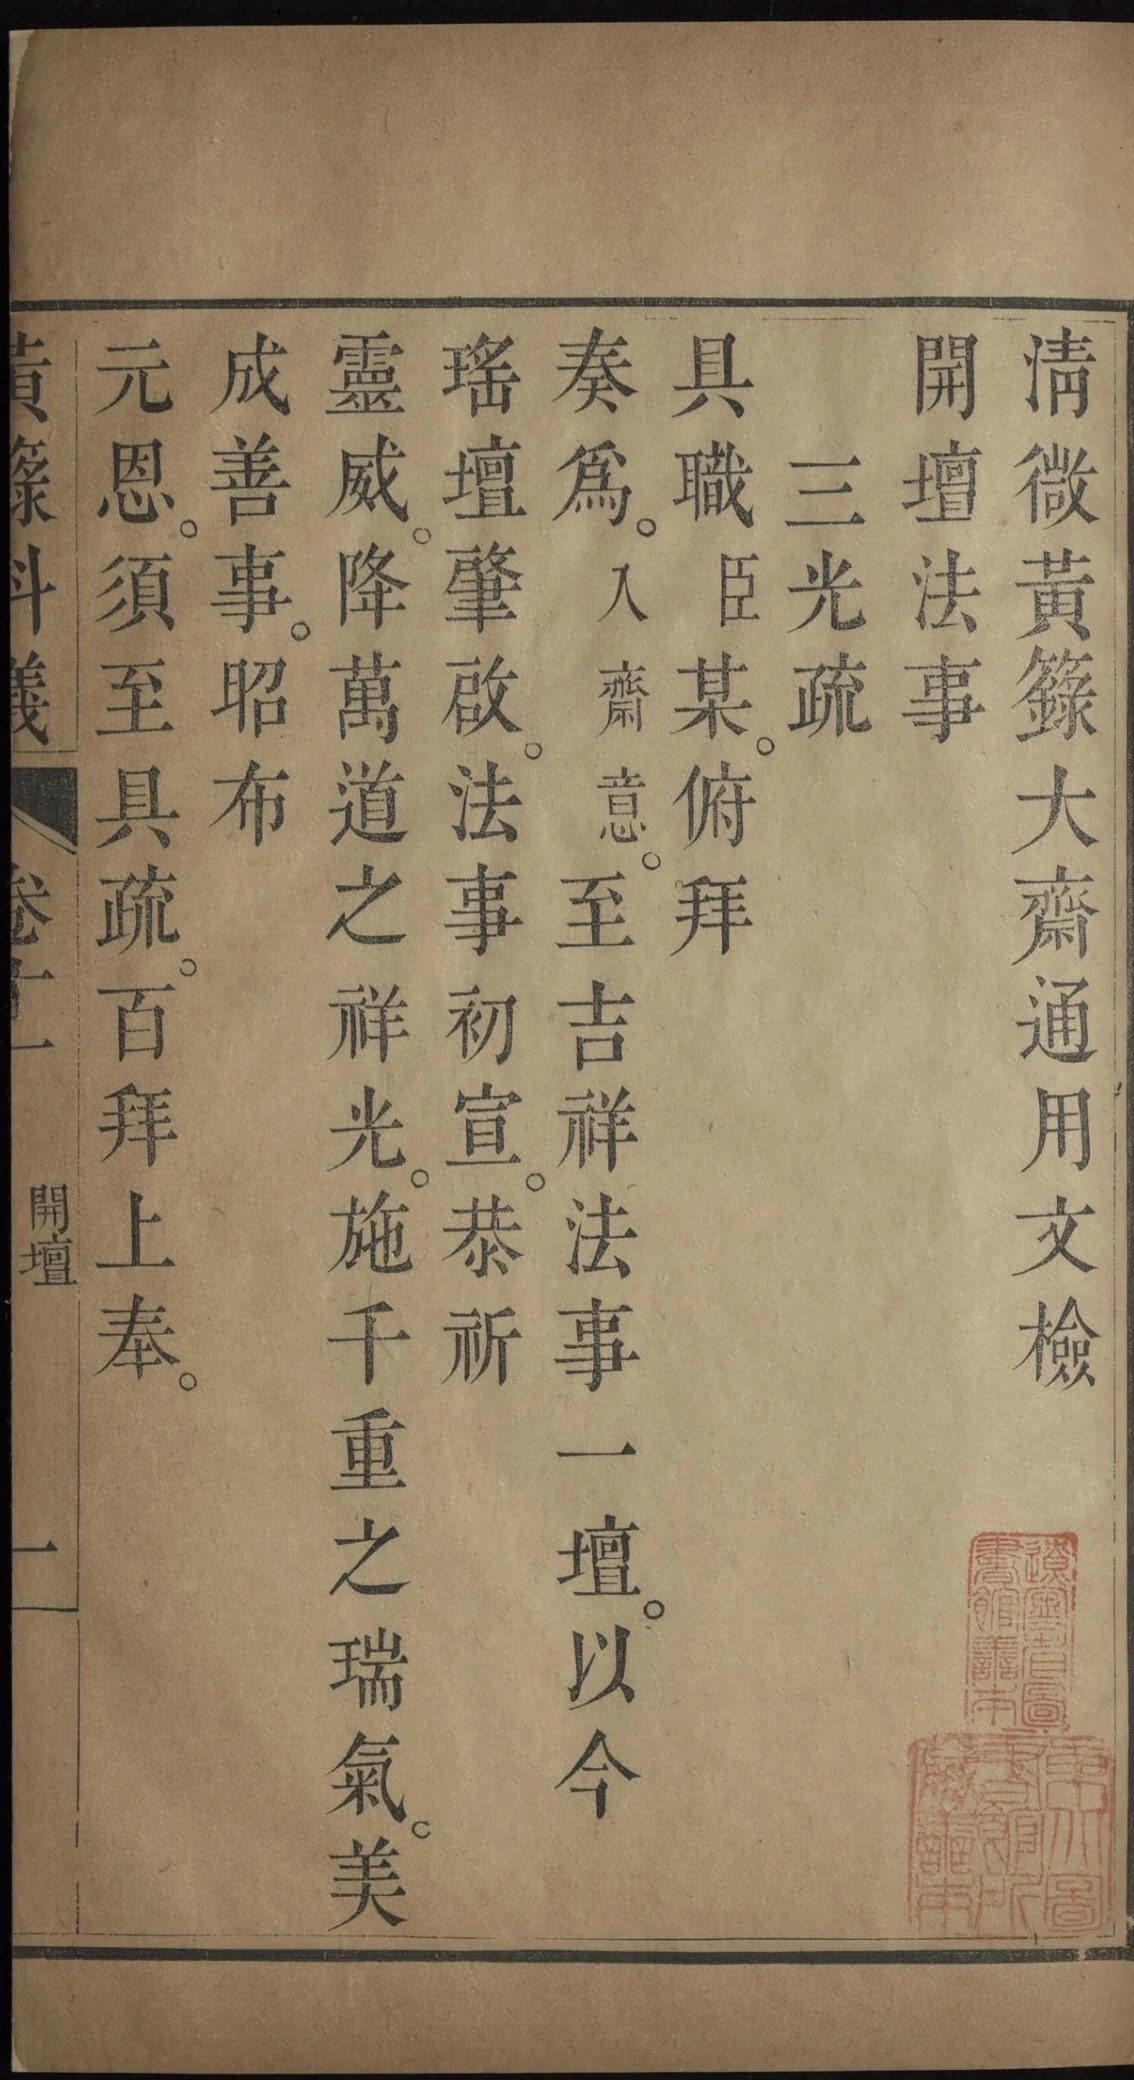 淸微黃籙大齋通用文檢
開壇法事
三光疏
具職臣某。俯拜
奏爲。入齋意。至吉祥法事一壇。以今
瑤壇肇啟。法事初宣。恭祈
靈威。降萬道之祥光。施千重之瑞氣。美
成善事。昭布
元恩。須至具疏。百拜上奉。
黃籙科儀
卷十一
開壇
一